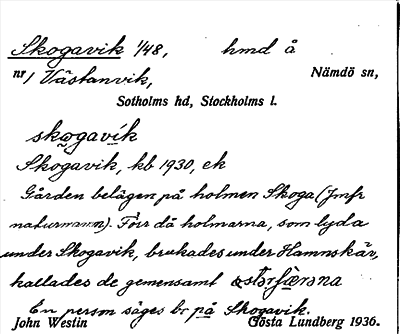 Skogavik 1/48, hmd å
nr 1 Västanvik, Nämdö sn,
Sotholms hd, Stockholms l.
skogavik
Skogavik, kb 1930, ek
Gården belägen på holmen Skoga (Jmfr
naturnamn). Förr då holmarna, som lyda
under Skogavik, brukades under Hamnskär,
kallades de gemensamt
En person säges br på Skogavik.
John Westin Gösta Lundberg 1936.